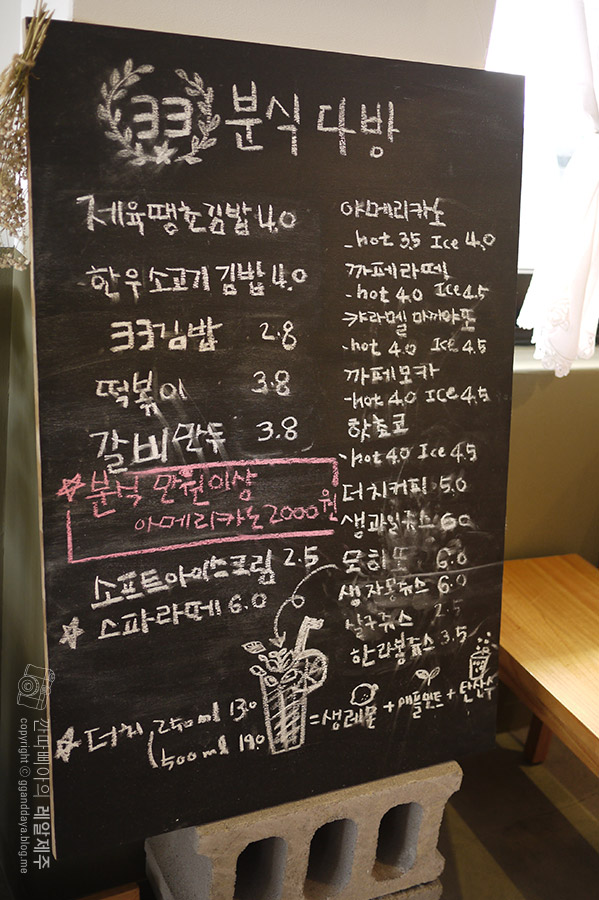 ヨヨ 분식다방
제육땡초김밥 4.0
한우소고기김밥 4.0
ヨヨ김밥 2.8
떡볶이 3.8
갈비만두 3.8
분식 만원이상
아메리카노 2000원
소프트아이스크림 2.5
스파라떼 6.0
더치 (250ml 13.0
500ml 19.0
아메리카노
-hot 3.5 Ice 4.0
까페라떼
-hot 4.0 Ice 4.5
캬라멜마끼야또
-hot 4.0 Ice 4.5
까페모카
-hot 4.0 Ice 4.5
핫쵸코
-hot 4.0 Ice 4.5
더치커피 5.0
생과일쥬스 6.0
모히또 6.0
생자몽쥬스 6.0
쥬스 2.5
한라봉쥬스 3.5
=생레몬+애플민트+탄산수
copyright ⓒ gganddaya.blog.me
레알제주